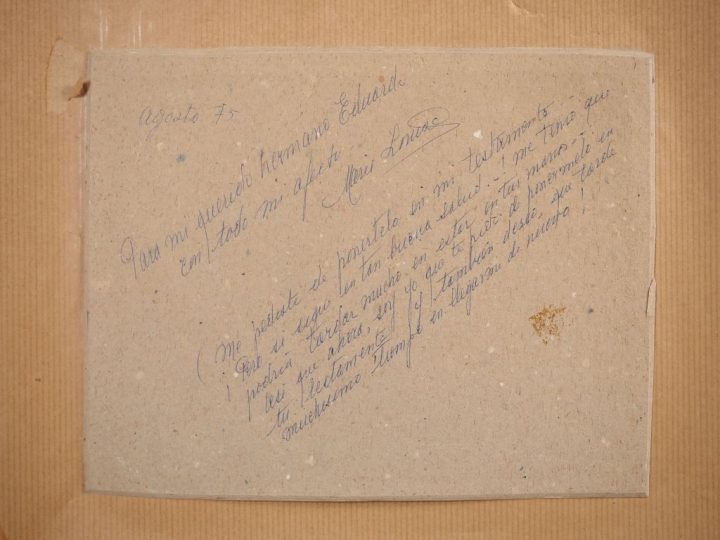 Agosto 75
Para mi querido hermano Eduardo
con todo mi afecto
Mario
( Me pediste de ponértelo en mi testamento
¡ Pero si sigo en tan buena salud ... ! me temo que
podría tardar mucho en estar en tus manos ...
asi que ahora, soy yo que te pido de ponérmelo en
tu testamento ( y también deseo, que tarde
muchisimo tiempo en llegarme de nuevo !